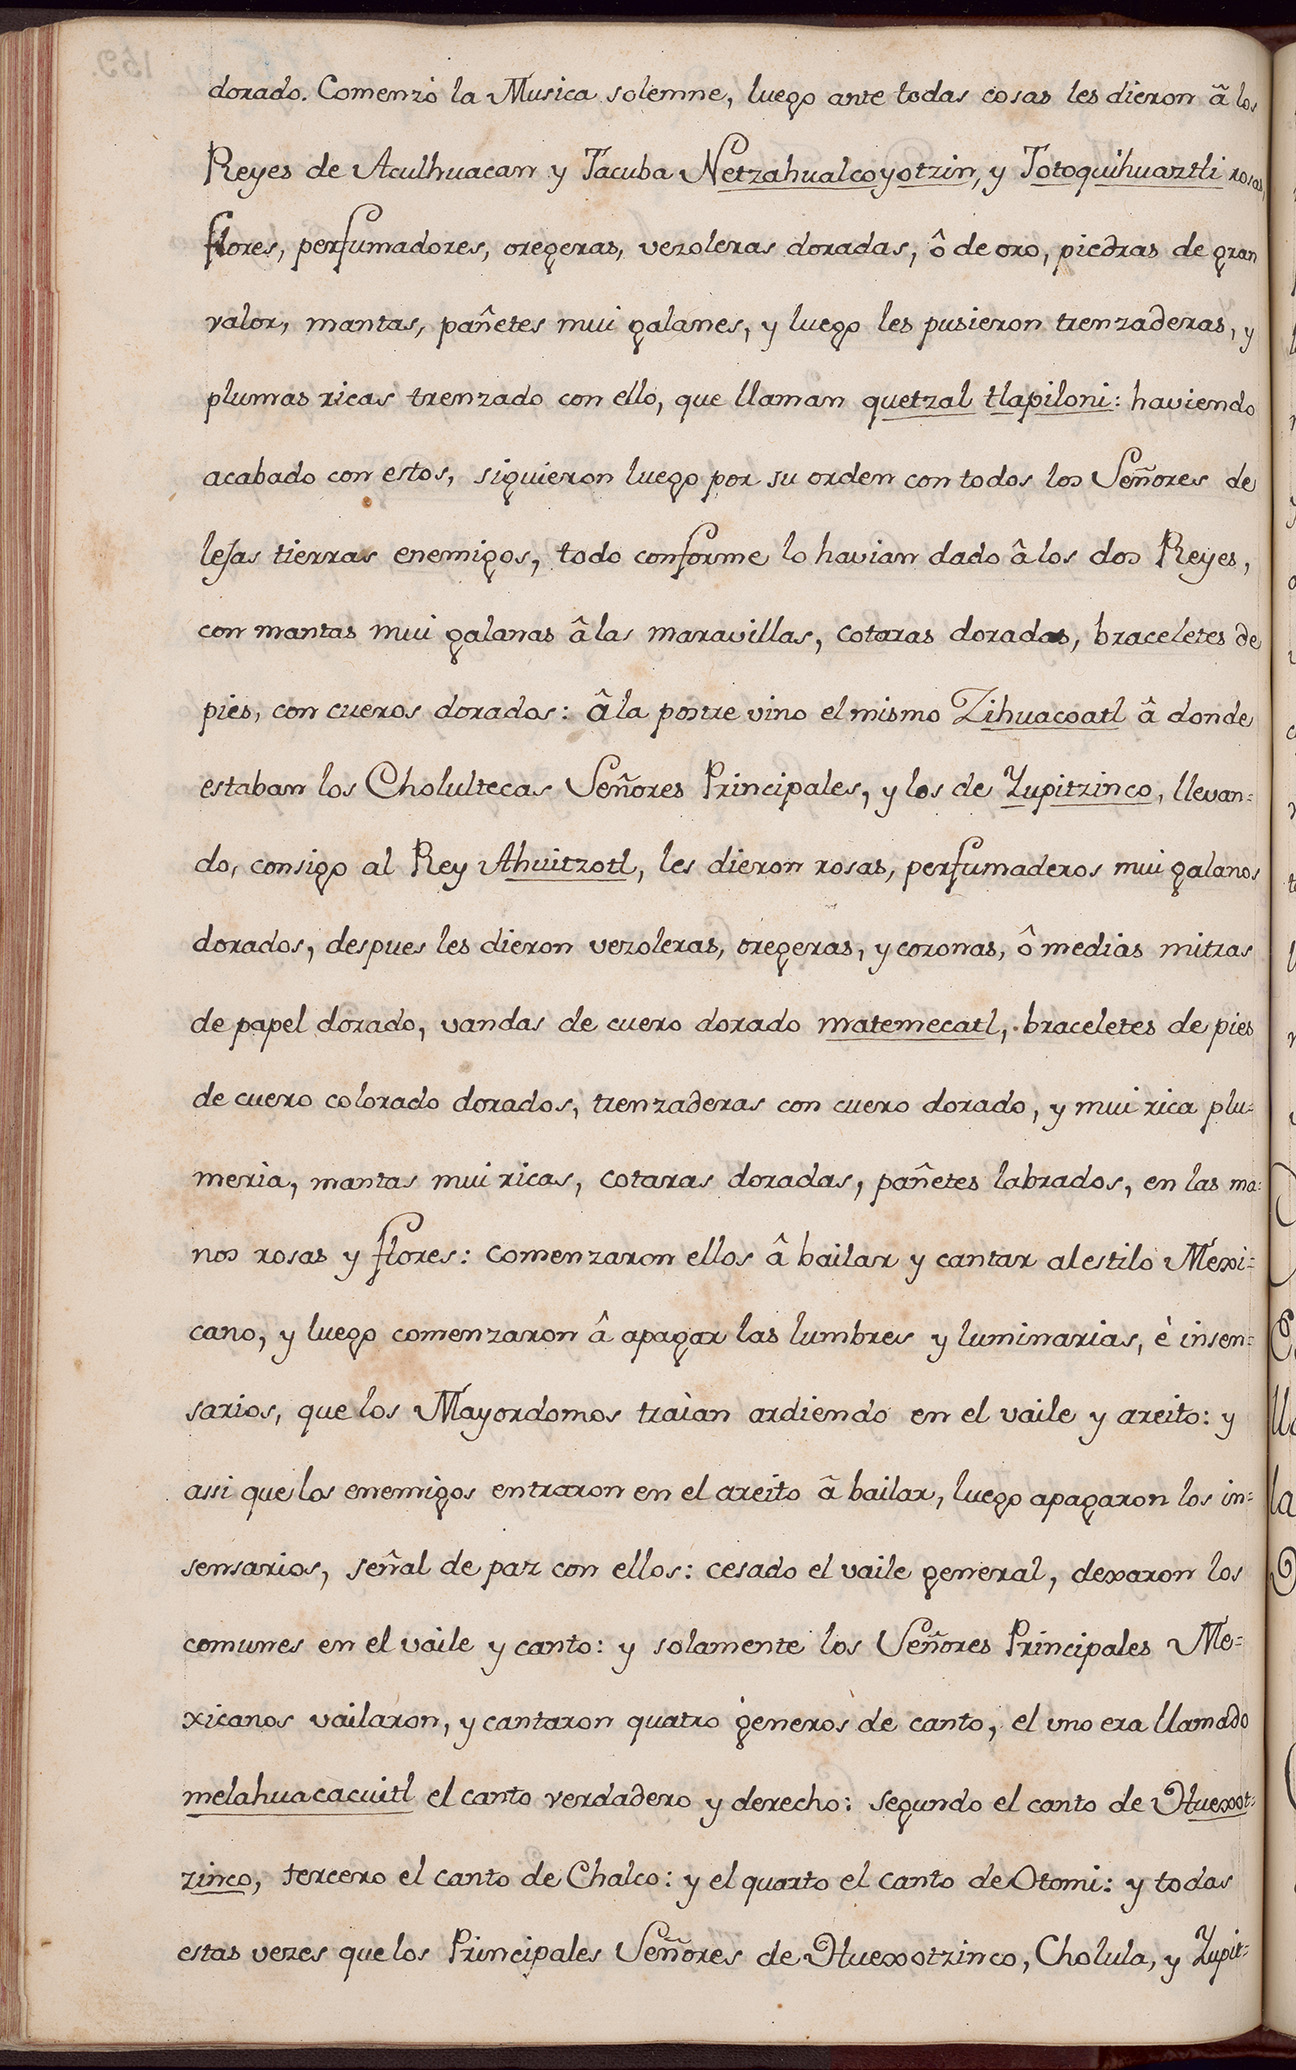 dorado. Comenzó la Musica solemne, luego ante todas cosas les dieron â los
Reyes de Aculhuacan y Tacuba Netzahualcoyotzin, y Totoquihuaztli rosas,
flores, perfumadores, oregeras, vezoleras doradas, ô de oro, piedras de gran
valor, mantas, pañetes mui galanes, y luego les pusieron trenzaderas, y
plumas ricas trenzado con ello, que llaman quetzal tlapiloni: haviendo
acabado con estos, siguieron luego por su orden con todos los Señores de
lejas tierras enemigos, todo conforme lo havian dado â los dos Reyes,
con mantas mui galanas â las maravillas, cotaras doradas, braceletes de
pies, con cueros dorados: â la postre vino el mismo Zihuacoatl â donde
estaban los Cholultecas Señores Principales, y los de Yupitzinco, llevan=
do, consigo al Rey Ahuitzotl, les dieron rosas, perfumaderos mui galanos
dorados, despues les dieron vezoleras, oregeras, y coronas, ô medias mitras
de papel dorado, vandas de cuero dorado matemecatl, braceletes de pies
de cuero colorado dorados, trenzaderas con cuero dorado, y mui rica plu=
meria, mantas mui ricas, cotaras doradas, pañetes labrados, en las ma=
nos rosas y flores: comenzaron ellos â bailar y cantar al estilo Mexi=
cano, y luego comenzaron â apagar las lumbres y luminarias, è insen=
sarios, que los Mayordomos traìan ardiendo en el vaile y areito: y
assi que los enemigos entraron en el areito â bailar, luego apagaron los in=
sensarios, señal de paz con ellos: cesado el vaile general, dexaron los
comunes en el vaile y canto: y solamente los Señores Principales Me=
xicanos vailaron, y cantaron quatro géneros de canto, el uno era llamado
melahuacacuitl el canto verdadero y derecho: segundo el canto de Huexot=
zinco, tercero el canto de Chalco: y el quarto el canto de Otomi: y todas
estas vezes que los Principales Señores de Huexotzinco, Cholula, y Yupit=